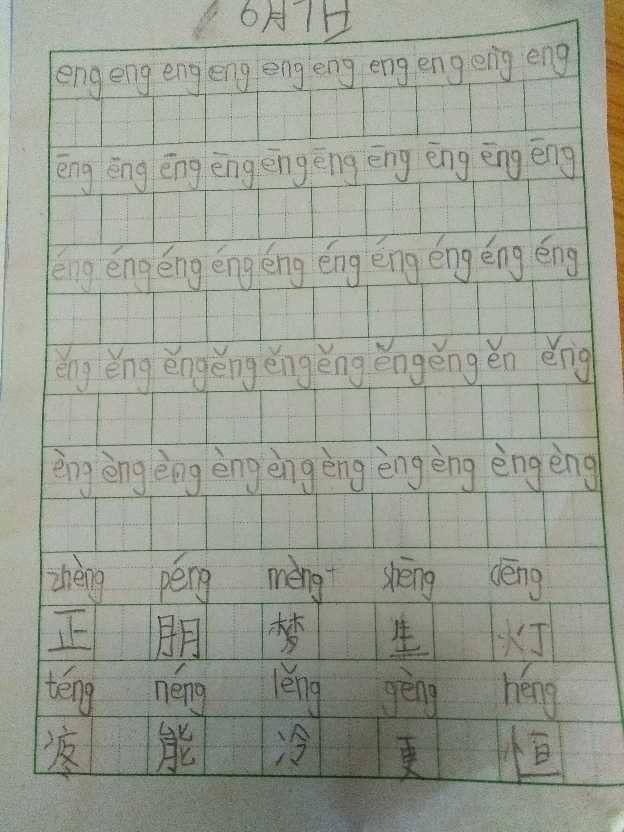 6月7日
eng eng eng eng eng eng eng eng eng eng
ēng ēng ēng ēng ēng ēng ēng ēng ēng ēng
éng éng éng éng éng éng éng éng éng éng
ěng ěng ěng ěng ěng ěng ěng ěng ěn ěng
èng èng èng èng èng èng èng èng èng èng
zhèng péng mèng shēng dēng
正 朋 梦 生 灯
téng néng lěng gèng héng
疼 能 冷 更 恒